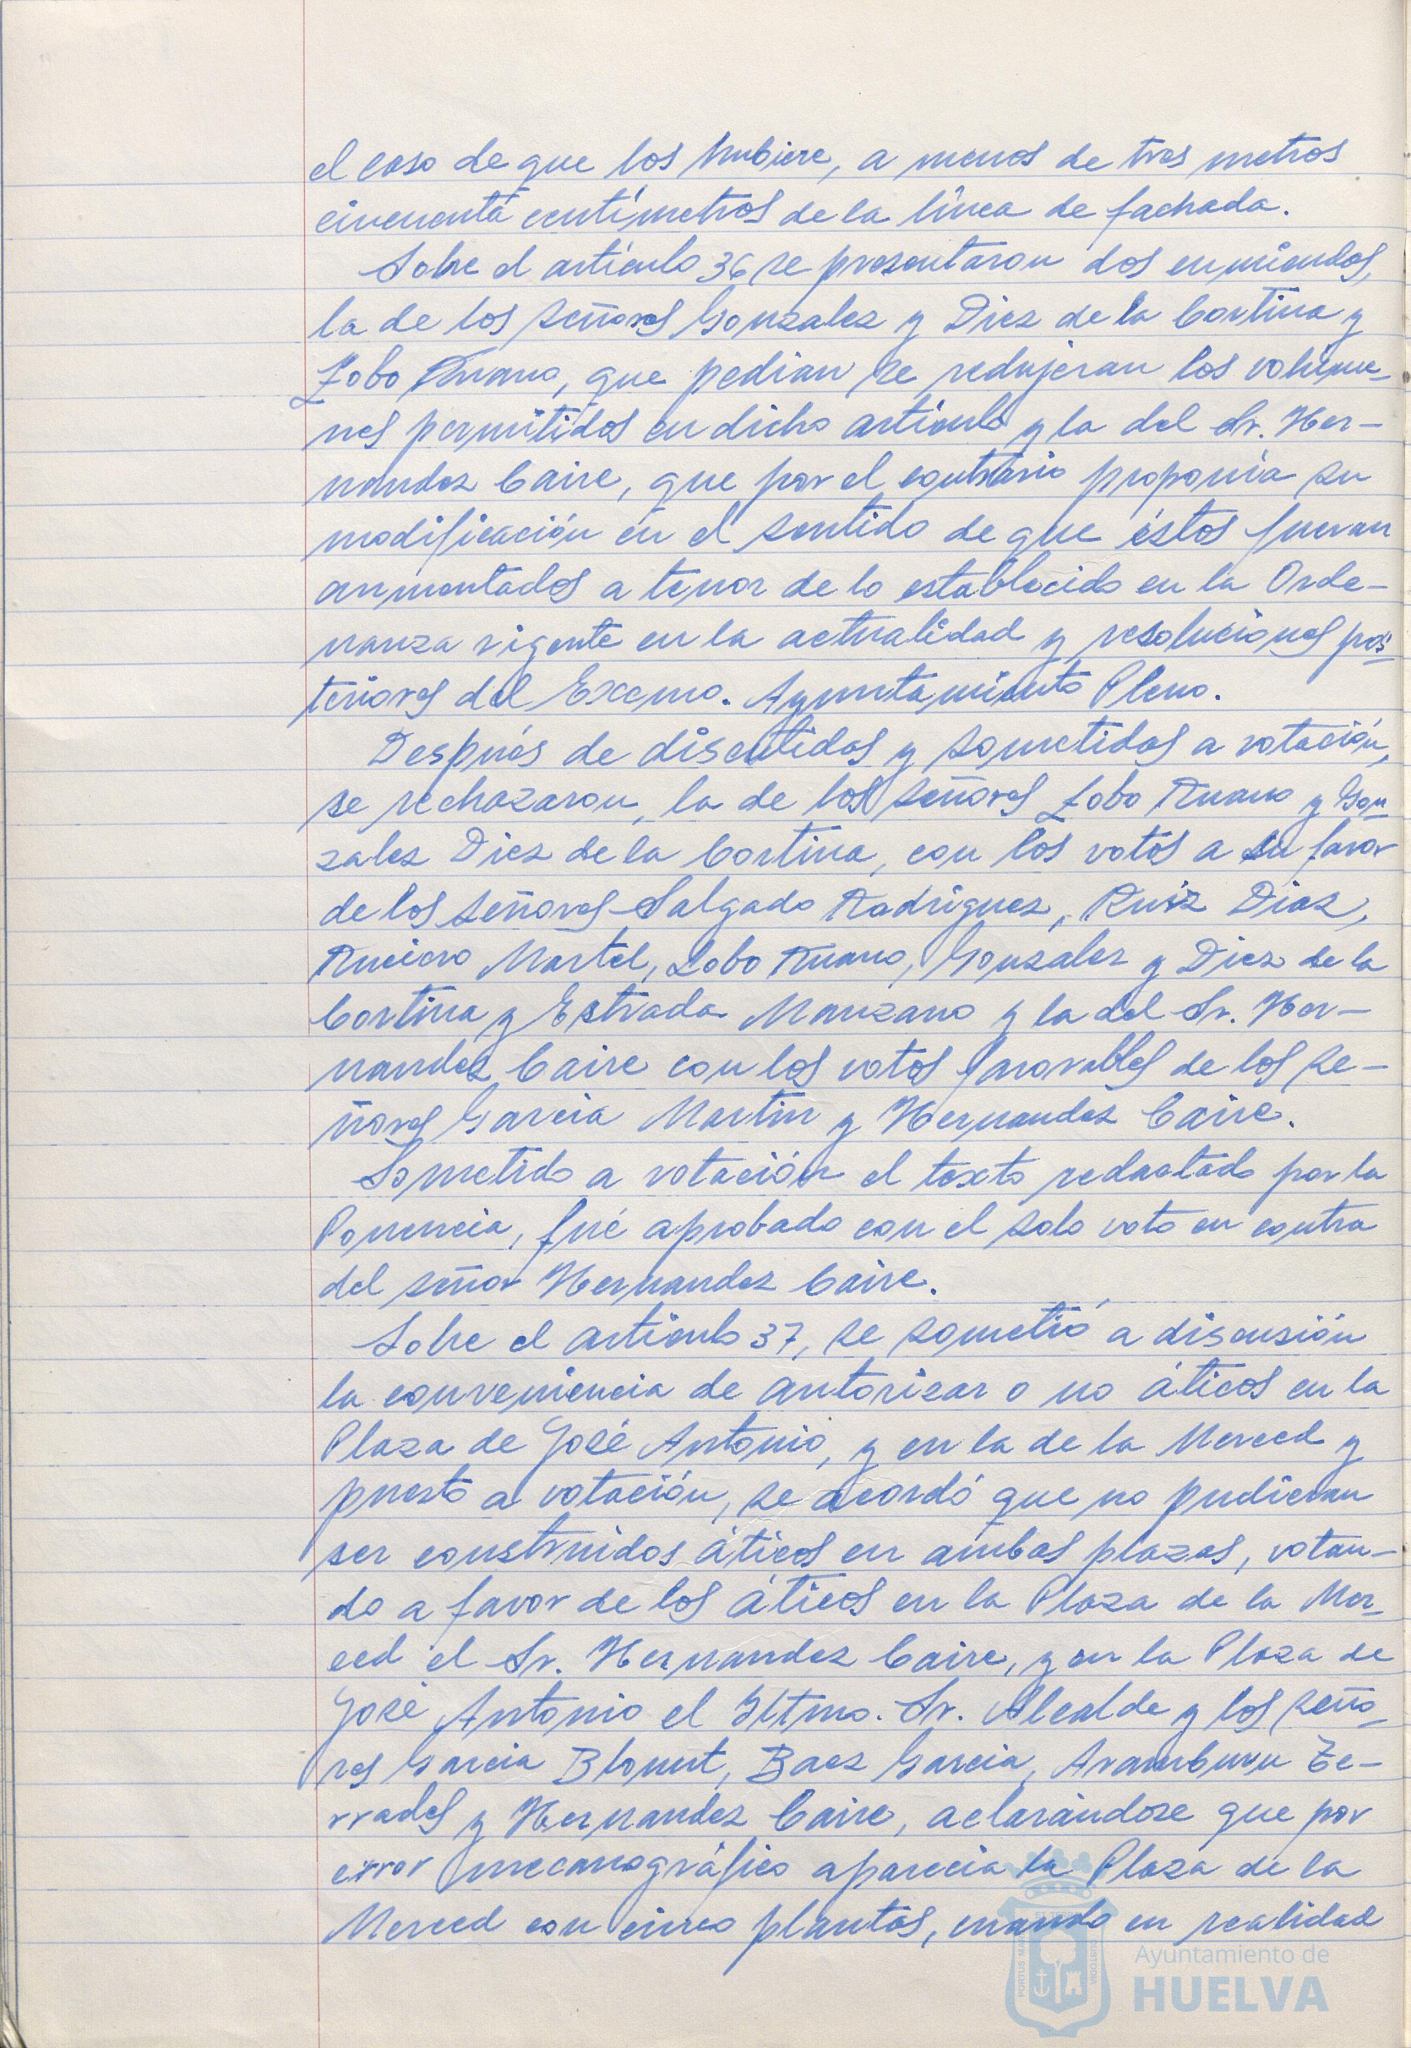 el caso de que los hubiere, a menos de tres metros
cincuenta centímetros de la línea de fachada.
Sobre el artículo 36 se presentaron dos enmiendas,
la de los señores Gonzalez y Diez de la Cortina y
Lobo Ruano, que pedian se redujeran los volúme-
nes permitidos en dicho artículo y la del Sr. Her-
nandez Caire, que por el contrario proponía su
modificación en el sentido de que éstos fueran
aumentados a tenor de lo establecido en la Orde-
nanza vigente en la actualidad y resoluciones pos-
teriores del Excmo. Ayuntamiento Pleno.
Después de discutidas y sometidas a votación,
se rechazaron, la de los señores Lobo Ruano y Gon-
zalez Diez de la Cortina, con los votos a su favor
de los señores Salgado Rodriguez, Ruiz Diaz,
Rucioro Martel, Lobo Ruano, Gonzalez y Diez de la
Cortina y Estrada Manzano y la del Sr. Her-
nandez Caire con los votos favorables de los se-
ñores Garcia Martin y Hernandez Caire.
Sometido a votación el texto redactado por la
Ponencia, fué aprobado con el solo voto en contra
del señor Hernandez Caire.
Sobre el articulo 37, se sometió a discusión
la conveniencia de autorizar o no áticos en la
Plaza de José Antonio, y en la de la Merced y
puesto a votación, se acordó que no pudieran
ser construidos áticos en ambas plazas, votan-
do a favor de los áticos en la Plaza de la Mer-
ced el Sr. Hernandez Caire, y en la Plaza de
José Antonio el Iltmo. Sr. Alcalde y los seño-
res Garcia Blount, Baez Garcia, Aramburu Te-
rrades y Hernandez Caire, aclarándose que por
error mecanográfico aparecia la Plaza de la
Merced con cinco plantas, cuando en realidad
Ayuntamiento de
HUELVA